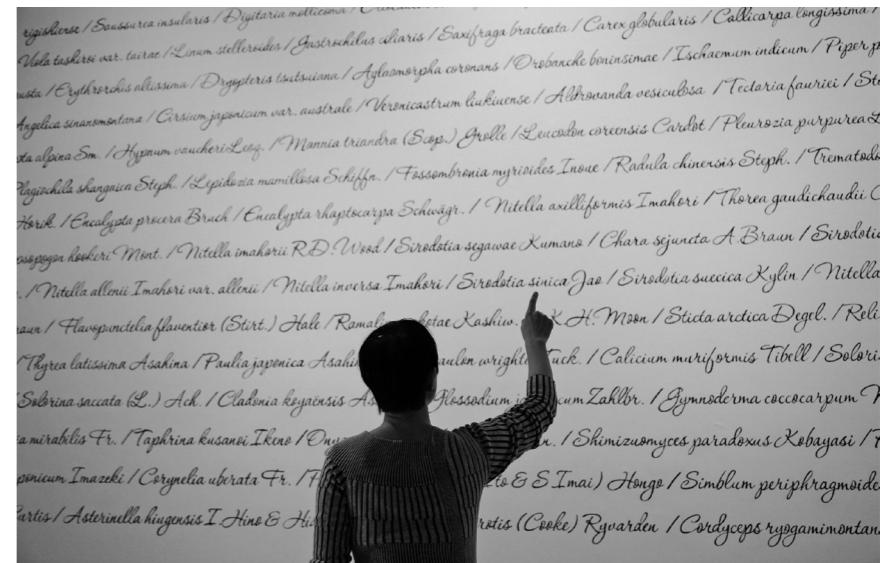 rigishiense / Saussurea insularis / Digitaria mollicoma /
Viola tashiroi var. tairae / Linum stelleroides / Gastrochilus ciliaris / Saxifraga bracteata / Carex globularis / Callicarpa longissima /
usta / Erythrorchis altissima / Dryopteris tsutsuiana / Aglaomorpha coronans / Orobanche boninsimae / Ischaemum indicum / Piper p
Angelica sinanomontana / Cirsium japonicum var. australe / Veronicastrum liukiuense / Aldrovanda vesiculosa / Tectaria fauriei / Ste
ta alpina Sm. / Hypnum vaucheri Lesq. / Mannia triandra (Scop.) Grolle / Leucodon coreensis Cardot / Pleurozia purpurea L
Plagiochila shangaica Steph. / Lepidozia mamillosa Schiffn. / Fossombronia myrioides Inoue / Radula chinensis Steph. / Trematodo
Horik. / Encalypta procera Bruch / Encalypta rhaptocarpa Schwägr. / Nitella axilliformis Imahori / Thorea gaudichaudii C
psopogon hookeri Mont. / Nitella imahorii R.D. Wood / Sirodotia segawae Kumano / Chara sejuncta A.Braun / Sirodotia
. / Nitella allenii Imahori var. allenii / Nitella inversa Imahori / Sirodotia sinica Jao / Sirodotia suecica Kylin / Nitella
raun / Flavopunctelia flaventior (Stirt.) Hale / Ramalin kotae Kashiw. K.H. Moon / Sticta arctica Degel. / Reli
Thyrea latissima Asahina / Paulia japonica Asahin aulon wrightii Tuck. / Calicium muriformis Tibell / Solori
Solorina saccata (L.) Ach. / Cladonia koyaensis As Glossodium ja cum Zahlbr. / Gymnoderma coccocarpum
a mirabilis Fr. / Taphrina kusanoi Ikeno / Ony n. / Shimizuomyces paradoxus Kobayasi /
ponicum Imazeki / Corynelia uberata Fr. / to & S.Imai) Hongo / Simblum periphragmoide
artis / Asterinella hiugensis I.Hino & Hi rotis (Cooke) Ryvarden / Cordyceps ryogamimontan